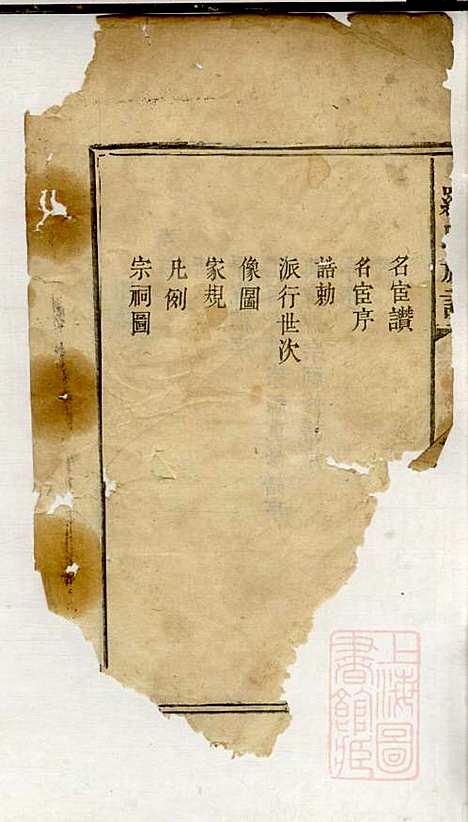 名宦讚
名宦序
誥勅
派行世次
像圖
家規
凡例
宗祠圖
上海圖書館藏